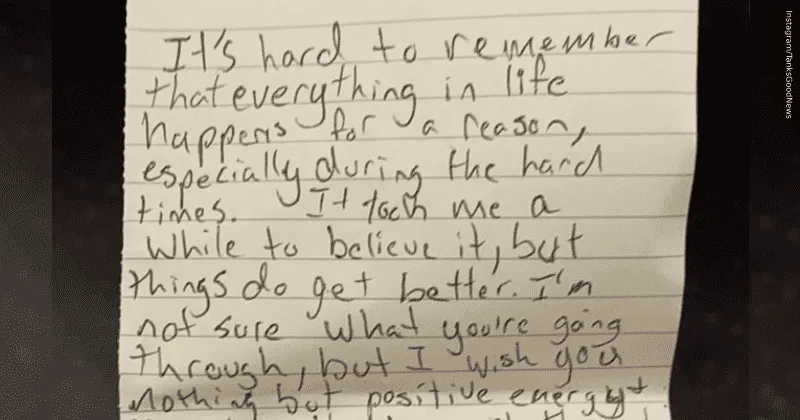 It's hard to remember
that everything in life
happens for a reason,
especially during the hard
times. It took me a
while to believe it, but
things do get better. I'm
not sure what you're going
through, but I wish you
nothing but positive energy +
Instagram/TanksGoodNews